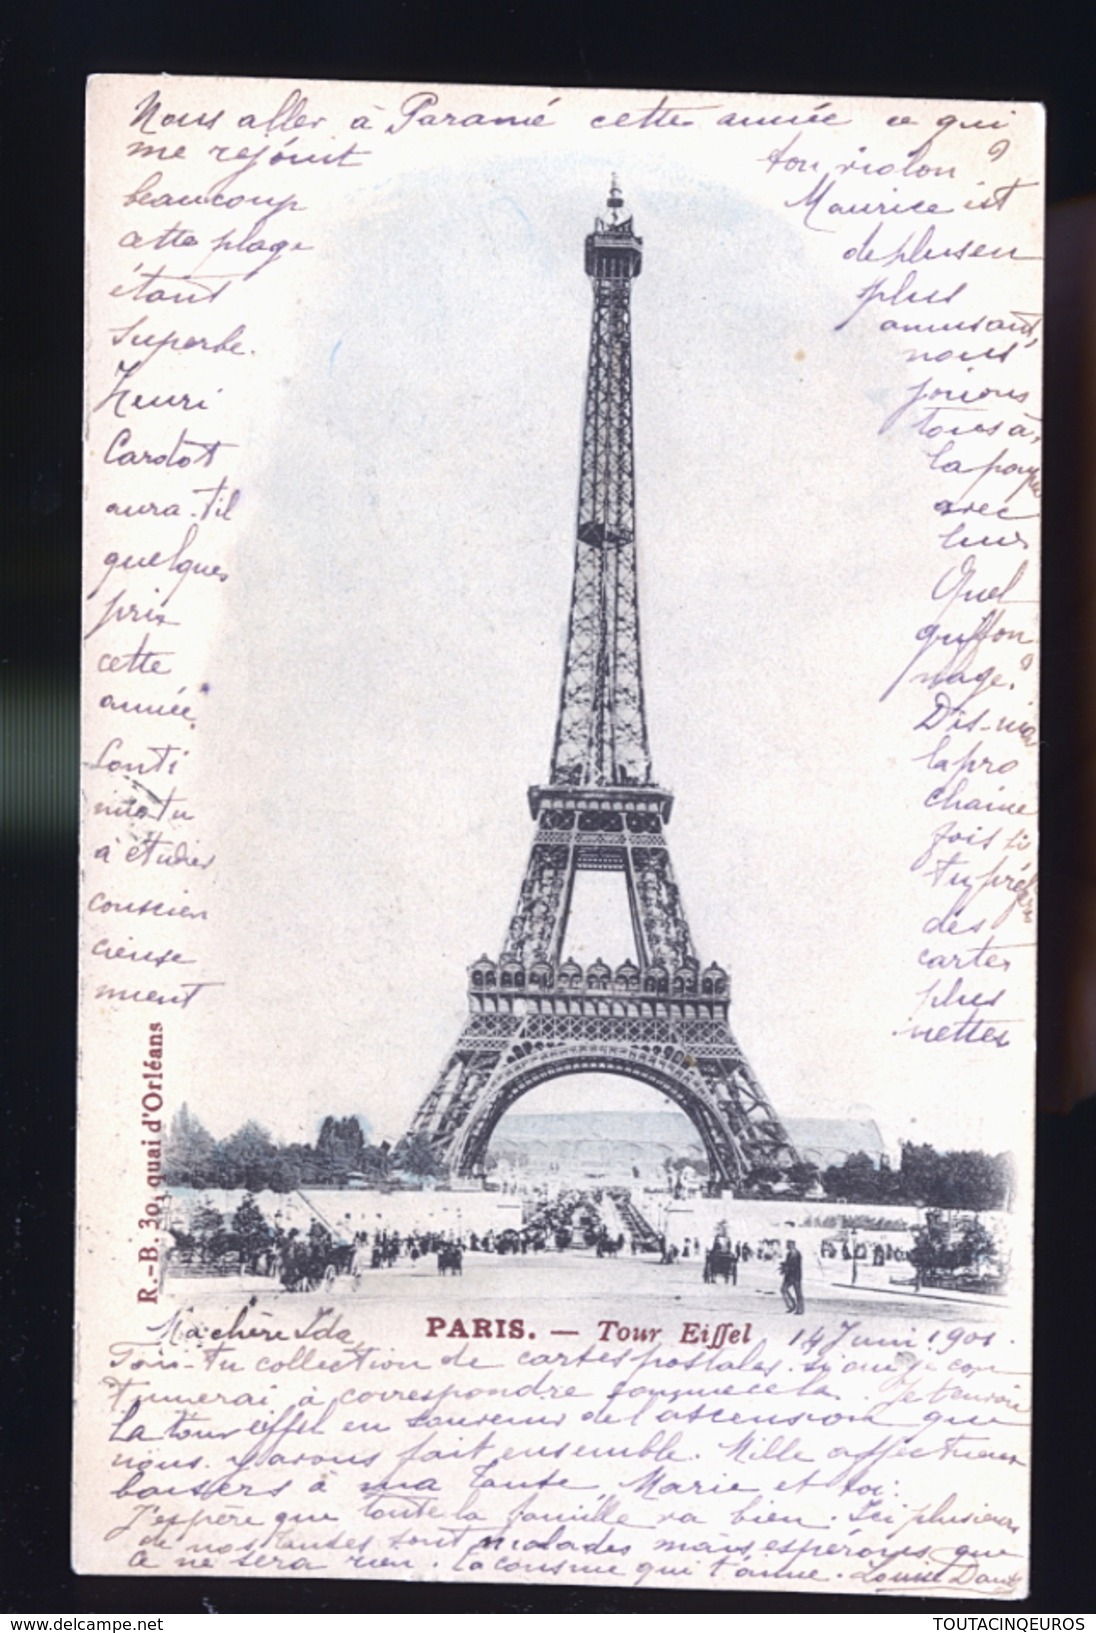 Nous aller à Paramé cette année ce qui
me rejouit
beaucoup
cette plage
étant
superbe.
Henri
Cardot
aura-t-il
quelques
prix
cette
année.
Conti
nues-tu
à étudier
conscien
cieuse
ment
ton violon ?
Maurice est
de plus en
plus
amusant,
nous
jouons
tous à
la
avec
lui
Quel
griffon
nage !
Dis-moi
la pro
chaine
fois si
tu préfères
des
cartes
plus
nettes
R.-B. 30, quai d'Orléans
PARIS. — Tour Eiffel
14 Juin 1901.
Ma chère Ida
Fais-tu collection de cartes postales. si oui je con
tinuerai à correspondre comme cela. Je t'envoie
La tour eiffel en souvenir de l'ascension que
nous y avons fait ensemble. Mille affectueux
baisers à ma tante, Marie et toi.
J'espère que toute la famille va bien. Ici plusieurs
de nos tantes sont malades mais espérons que
ce ne sera rien. La cousine qui t'aime. Louise
www.delcampe.net
TOUTACINQEUROS